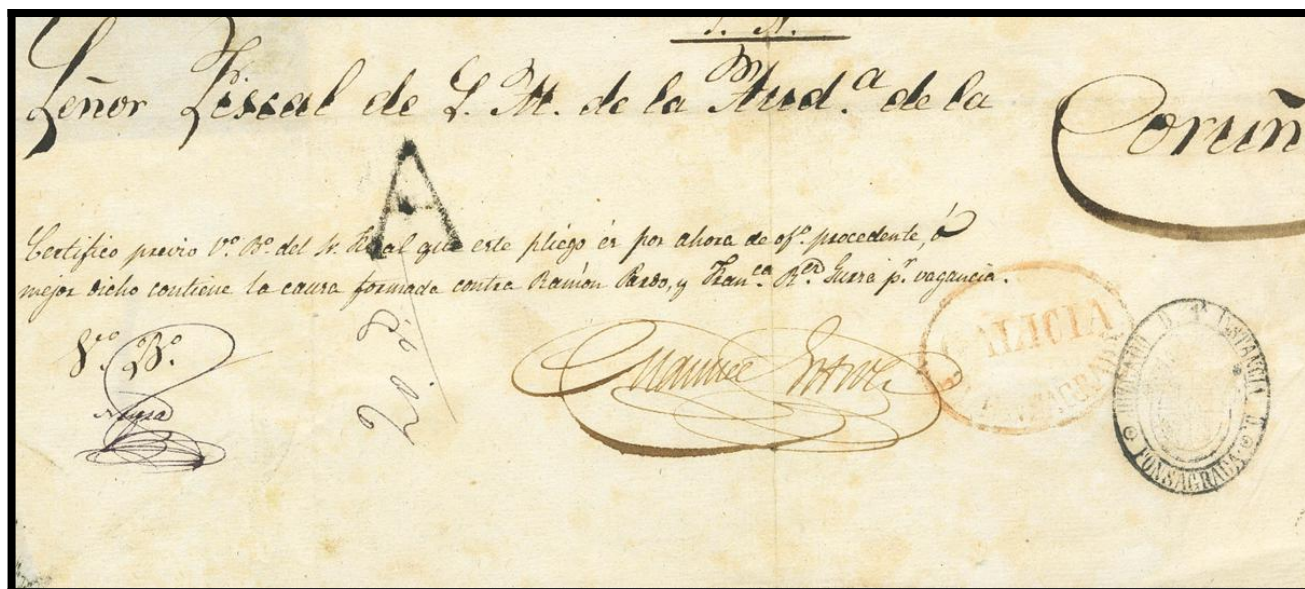 S. N.
Señor Fiscal de S. M. de la Aud.ª de la Coruñ
A
Certifico previo Vº. Bº. del Sr. que este pliego és por ahora de ofº. procedente, ó
mejor dicho contiene la causa formada contra Ramón Pardo, y Fran.ca pr. vagancia.
Vº. Bº.
ALICIA
JUZGADO D 1ª INSTANCIA D
FONSAGRADA